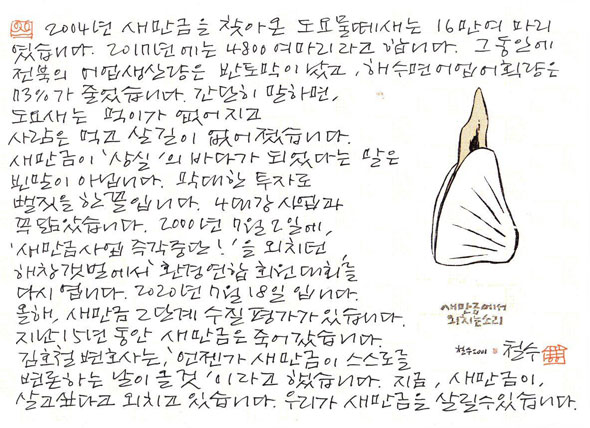 2004년 새만금을 찾아온 도요물떼새는 16만여 마리
였습니다. 2017년에는 4800여마리라고 합니다. 그동안에
전북의 어업생산량은 반토막이 났고, 해수면어업어획량은
73%가 줄었습니다. 간단히 말하면,
도요새는 먹이가 없어지고
사람은 먹고 살길이 없어졌습니다.
새만금이 '상실'의 바다가 되었다는 말은
빈말이 아닙니다. 막대한 투자로
뻘짓을 한 꼴입니다. 4대강 사업과
꼭 닮았습니다. 2000년 7월 2일에,
'새만금사업 즉각중단!'을 외치던,
해창갯벌에서 '환경연합 회원대회'를
다시 엽니다. 2020년 7월 18일 입니다.
올해, 새만금 2단계 수질평가가 있습니다.
지난 15년 동안 새만금은 죽어갔습니다.
김호철 변호사는, '언젠가 새만금이 스스로를
변론하는 날이 올 것'이라고 했습니다. 지금, 새만금이,
살고싶다고 외치고 있습니다. 우리가 새만금을 살릴수있습니다.
새만금에서
외치는소리
철수2001
철수